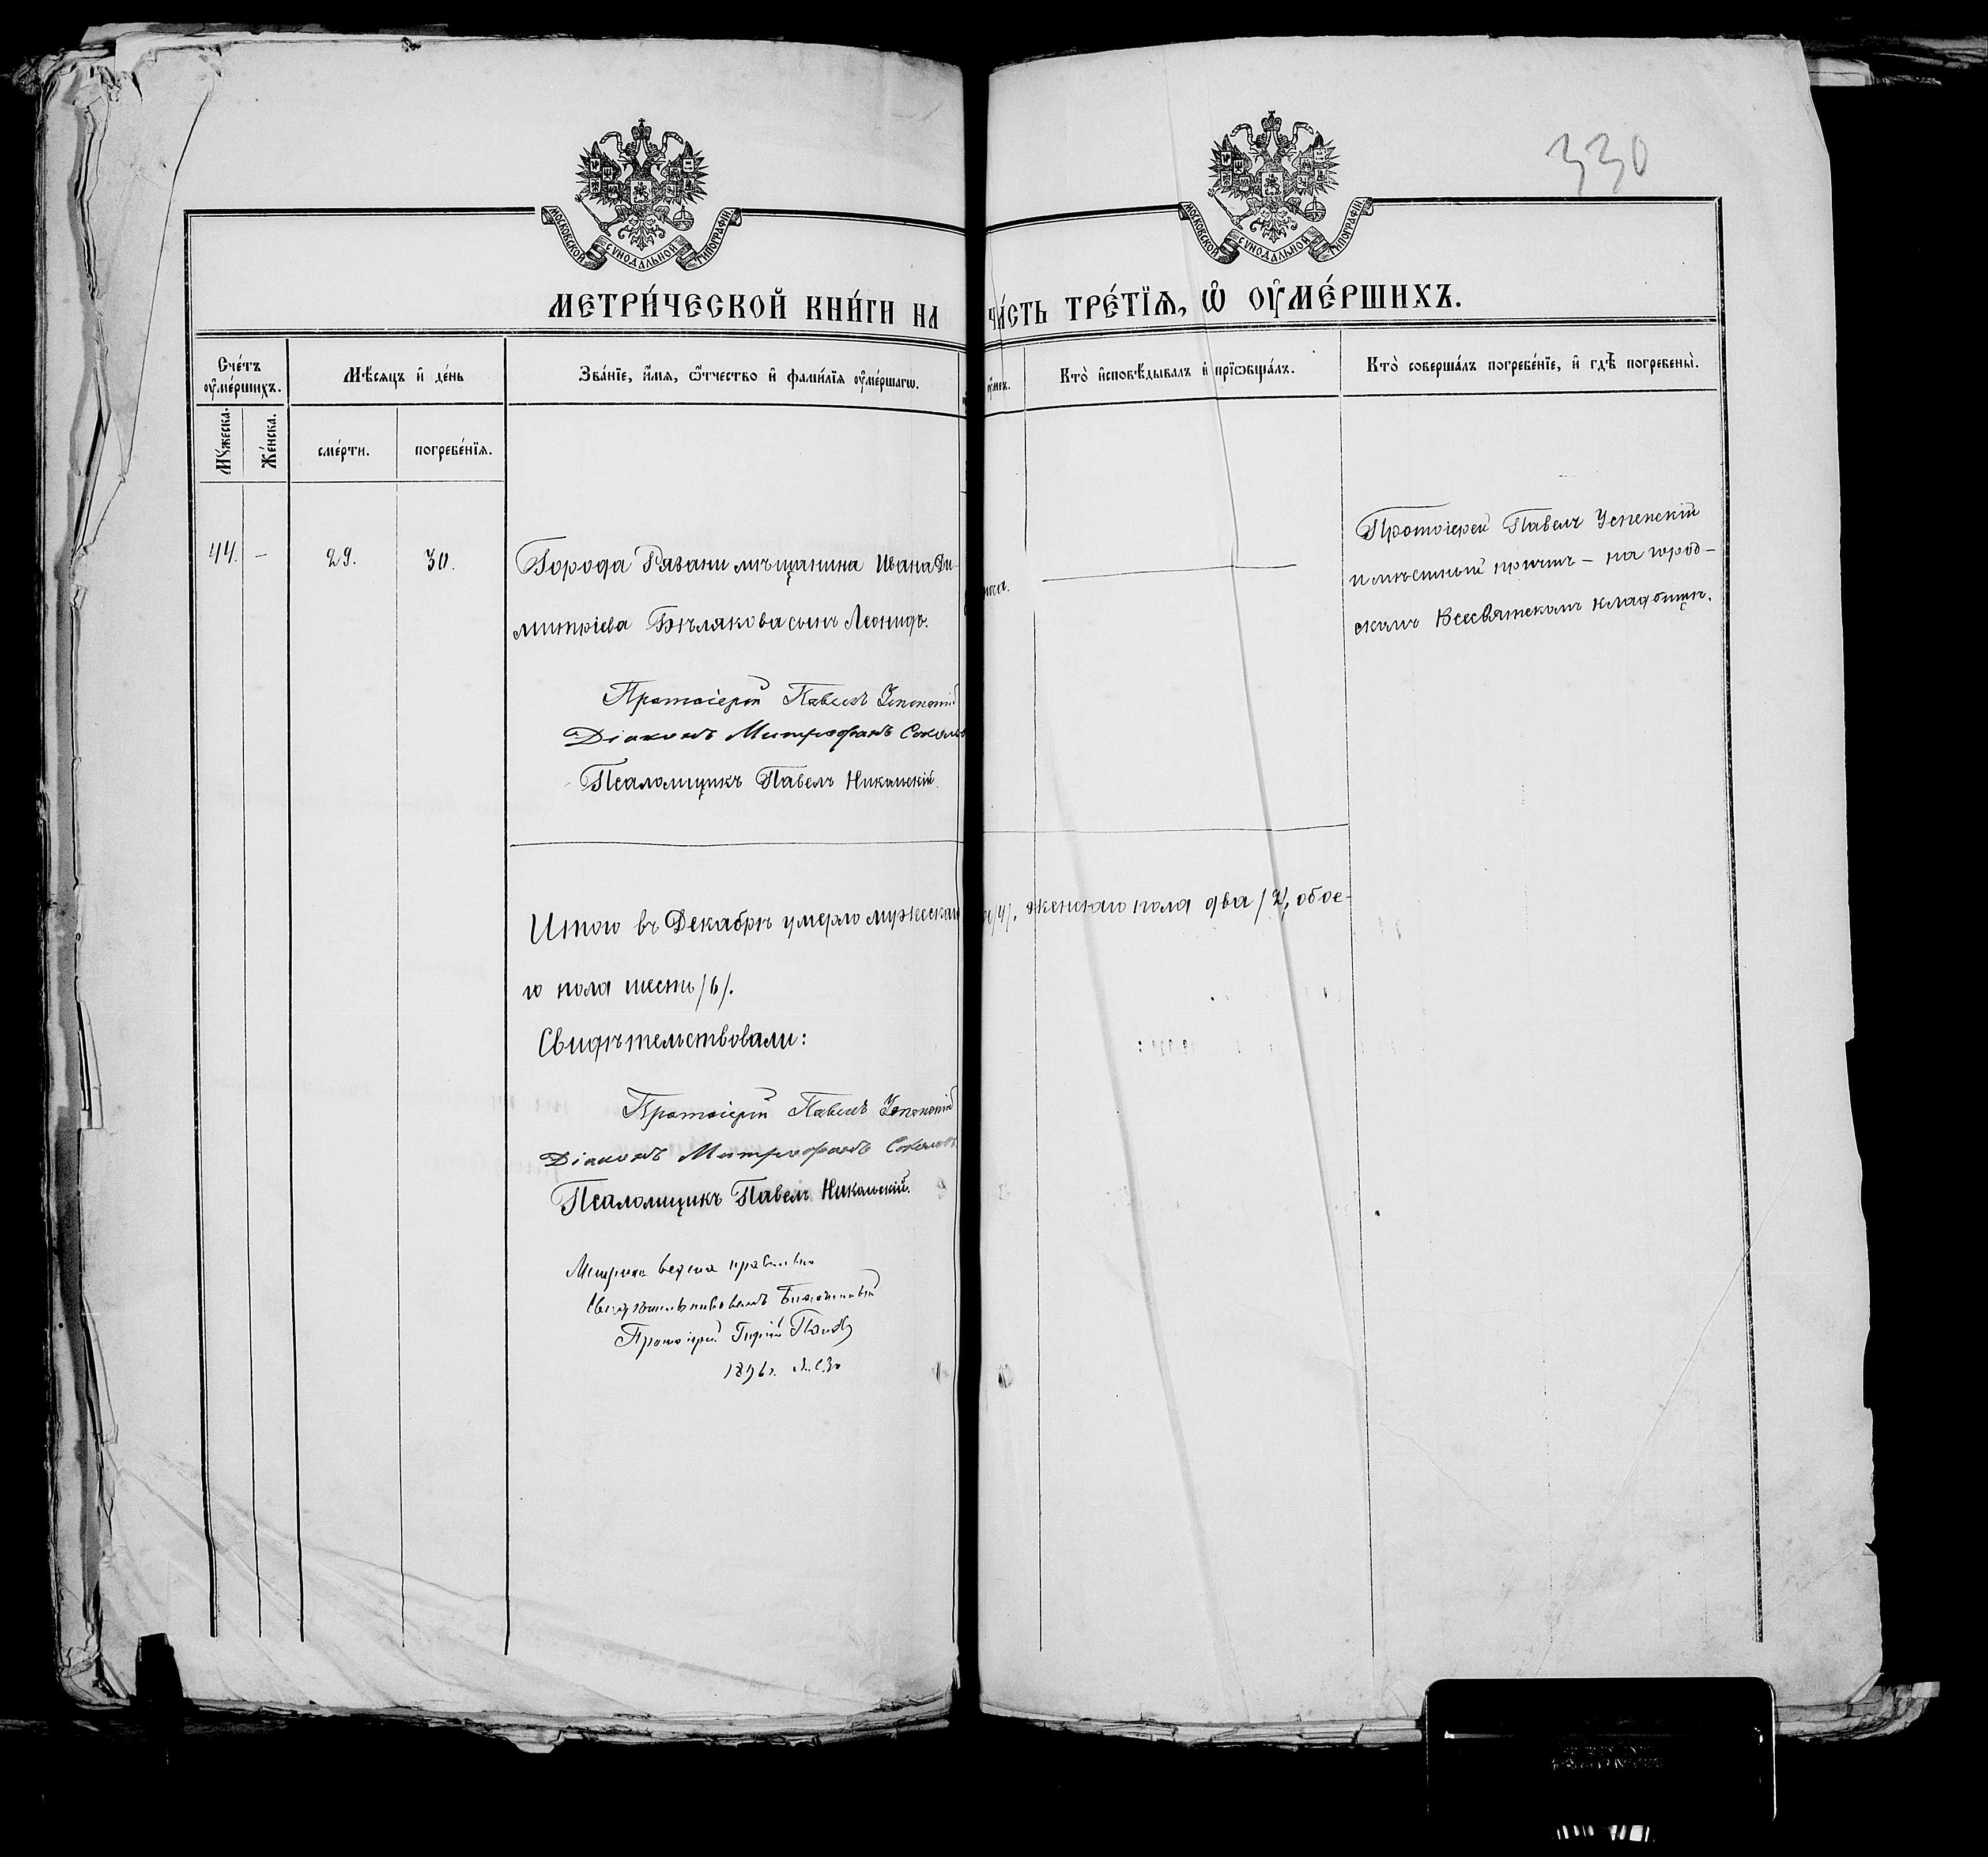 330
МОСКОВСКОЙ СѴНОДАЛЬНОЙ ТИПОГРАФІИ.
МОСКОВСКОЙ СѴНОДАЛЬНОЙ ТИПОГРАФІИ.
МЕТРИ́ЧЕСКОЙ КНИ́ГИ НА
ЧА́СТЬ ТРЕ́ТЇѦ, Ѡ҆ ОУ҆МЕ́РШИХЪ.
Сче́тъ оу҆ме́ршихъ.
Мѣ́сяцъ и҆ де́нь
Зва́нїе, и҆́мя, ѻ҆́тчество и҆ фами́лїя оу҆ме́ршагѡ.
Кто̀ и҆сповѣ́дывалъ и҆ прїѡбща́лъ.
Кто̀ соверша́лъ погребе́нїе, и҆ гдѣ̀ погребены̀.
Мꙋ́жеска.
Же́нска.
сме́рти.
погребе́нїя.
44.
–
29.
30.
Города Рязани мѣщанина Ивана Ди-
митріева Бѣлякова сынъ Леонидъ.
Протоіерей Павелъ Успенскій
и мѣстный причтъ – на город-
скомъ Всесвятскомъ кладбищѣ.
Протоіерей Павелъ Успенскій
Діаконъ Митрофанъ Соколовъ
Псаломщикъ Павелъ Никольскій.
Итого въ Декабрѣ умерло мужескаго
/4/. женскаго пола два /2/, обое-
го пола шесть /6/.
Свидѣтельствовали:
Протоіерей Павелъ Успенскій
Діаконъ Митрофанъ Соколовъ
Псаломщикъ Павелъ Никольскій.
Метрика ведена правильно
Свидѣтельствовалъ Благочинный
Протоіерей
1896 г.